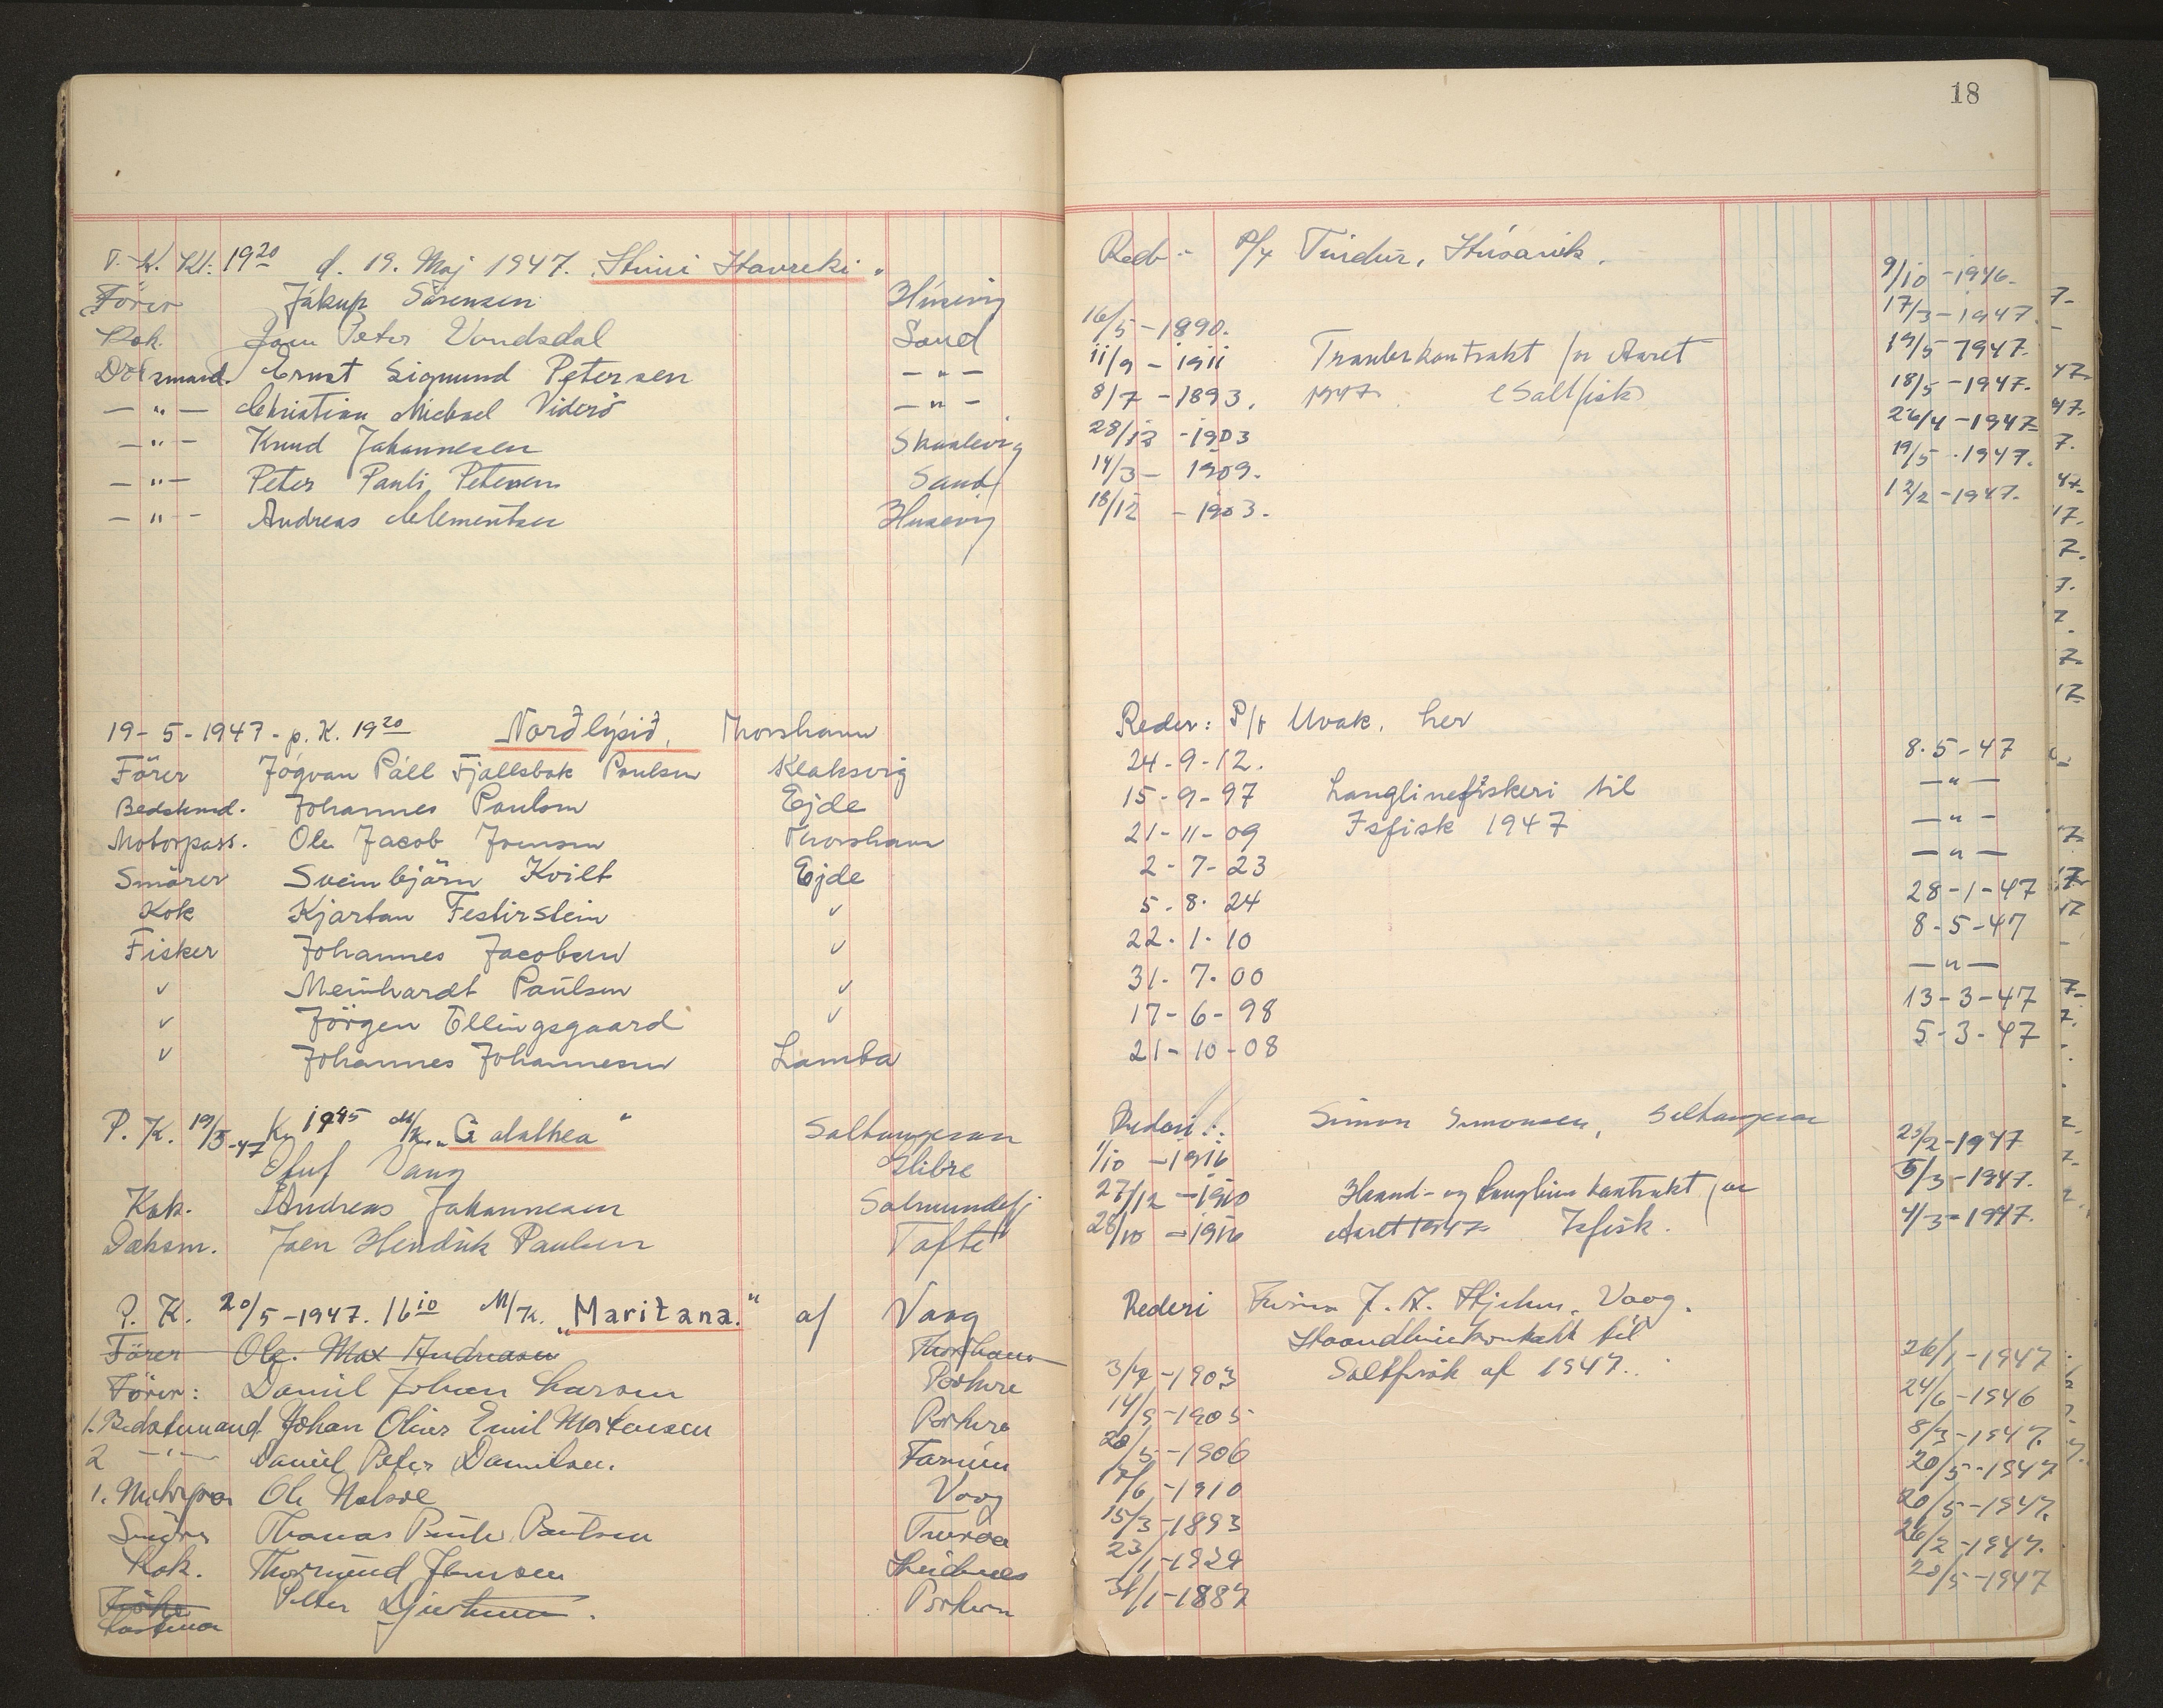 18
P. K. Kl. 19 20 d. 19. Maj 1947.
Red: P/f Tindur, Húsavik.
Förer Jákup Sörensen Húsevig 16/5-1890. 9/10-1946.
Kok. Peter Vondsdal Sand 11/9-1911 17/3-1947
Ernst Sigmund Petersen -"- 8/7-1893. 19/5 1947.
-"- Christian Michael Viderö -"- 28/12-1903 18/5-1947.
-"- Knud Johannesen Skaalevig 14/3-1909. 26/4-1947
-"- Peter Pauli Petersen Sand 18/12-1903. 19/5-1947.
-"- Andreas Clementsen Husevig 12/2-1947.
kontrakt for Aaret
1947. (Saltfisk)
19-5-1947- p. K. 19 20 Nordlýsid, Thorshavn Reder: P/f Uvak, her
Förer Jógvan Páll Fjallsbak Poulsen Klaksvig 24-9-12. 8-5-47
Bedstmd. Johannes Poulsen Ejde 15-9-97 Langlinefiskeri til -"-
Motorpass. Ole Jacob Joensen Thorshavn 21-11-09 Isfisk 1947 -"-
Smörer Sveinbjörn Kvilt Ejde 2-7-23 -"-
Kok Kjartan Festirstein " 5-8-24 28-1-47
Fisker Johannes Jacobsen " 22-1-10 8-5-47
" Meinhardt Paulsen " 31-7-00 -"-
" Jörgen Ellingsgaard " 17-6-98 13-3-47
" Johannes Johannesen Lamba 21-10-08 5-3-47
P. K. 19/5-47 Kl. 1945 M/K. "Galathea" Saltangeraa Rederi: Simon Simonsen, Saltangeraa
Oluf Vang Glibre 1/10-1916 25/2-1947
Kok. Andreas Johannesen 27/12-1910 Haand- og Langline kontrakt for 5/3-1947.
Dæksm. Joen Hendrik Paulsen Tofte 28/10-1916 Aaret 1947 Isfisk. 4/3-1947.
P. K. 20/5-1947. 16 10 M/K. "Maritana." af Vaag Rederi Firma J. A. Hjelm, Vaag.
Förer Ole. Max Andreasen Thorshavn Haandlinekontrakt til
Förer: Daniel Johan Larsen Porkere 3/7-1903 Saltfisk af 1947. 26/1-1947
1. Bedstemand Johan Oliver Emil Mortensen Porkere 14/9-1905 24/6-1946
2 -"- Daniel Peter Danielsen. Famiin 20/5-1906 8/3-1947.
1. Motorpas Ole Nolsøe Vaag 17/6-1910 20/5-1947
Smörer Thomas Poulsen Tveraa 15/3-1893 20/5-1947.
Kok. Thormund Jensen 23/1-1924 26/2-1947.
Peter Porkere 31/1-1887 20/5-1947